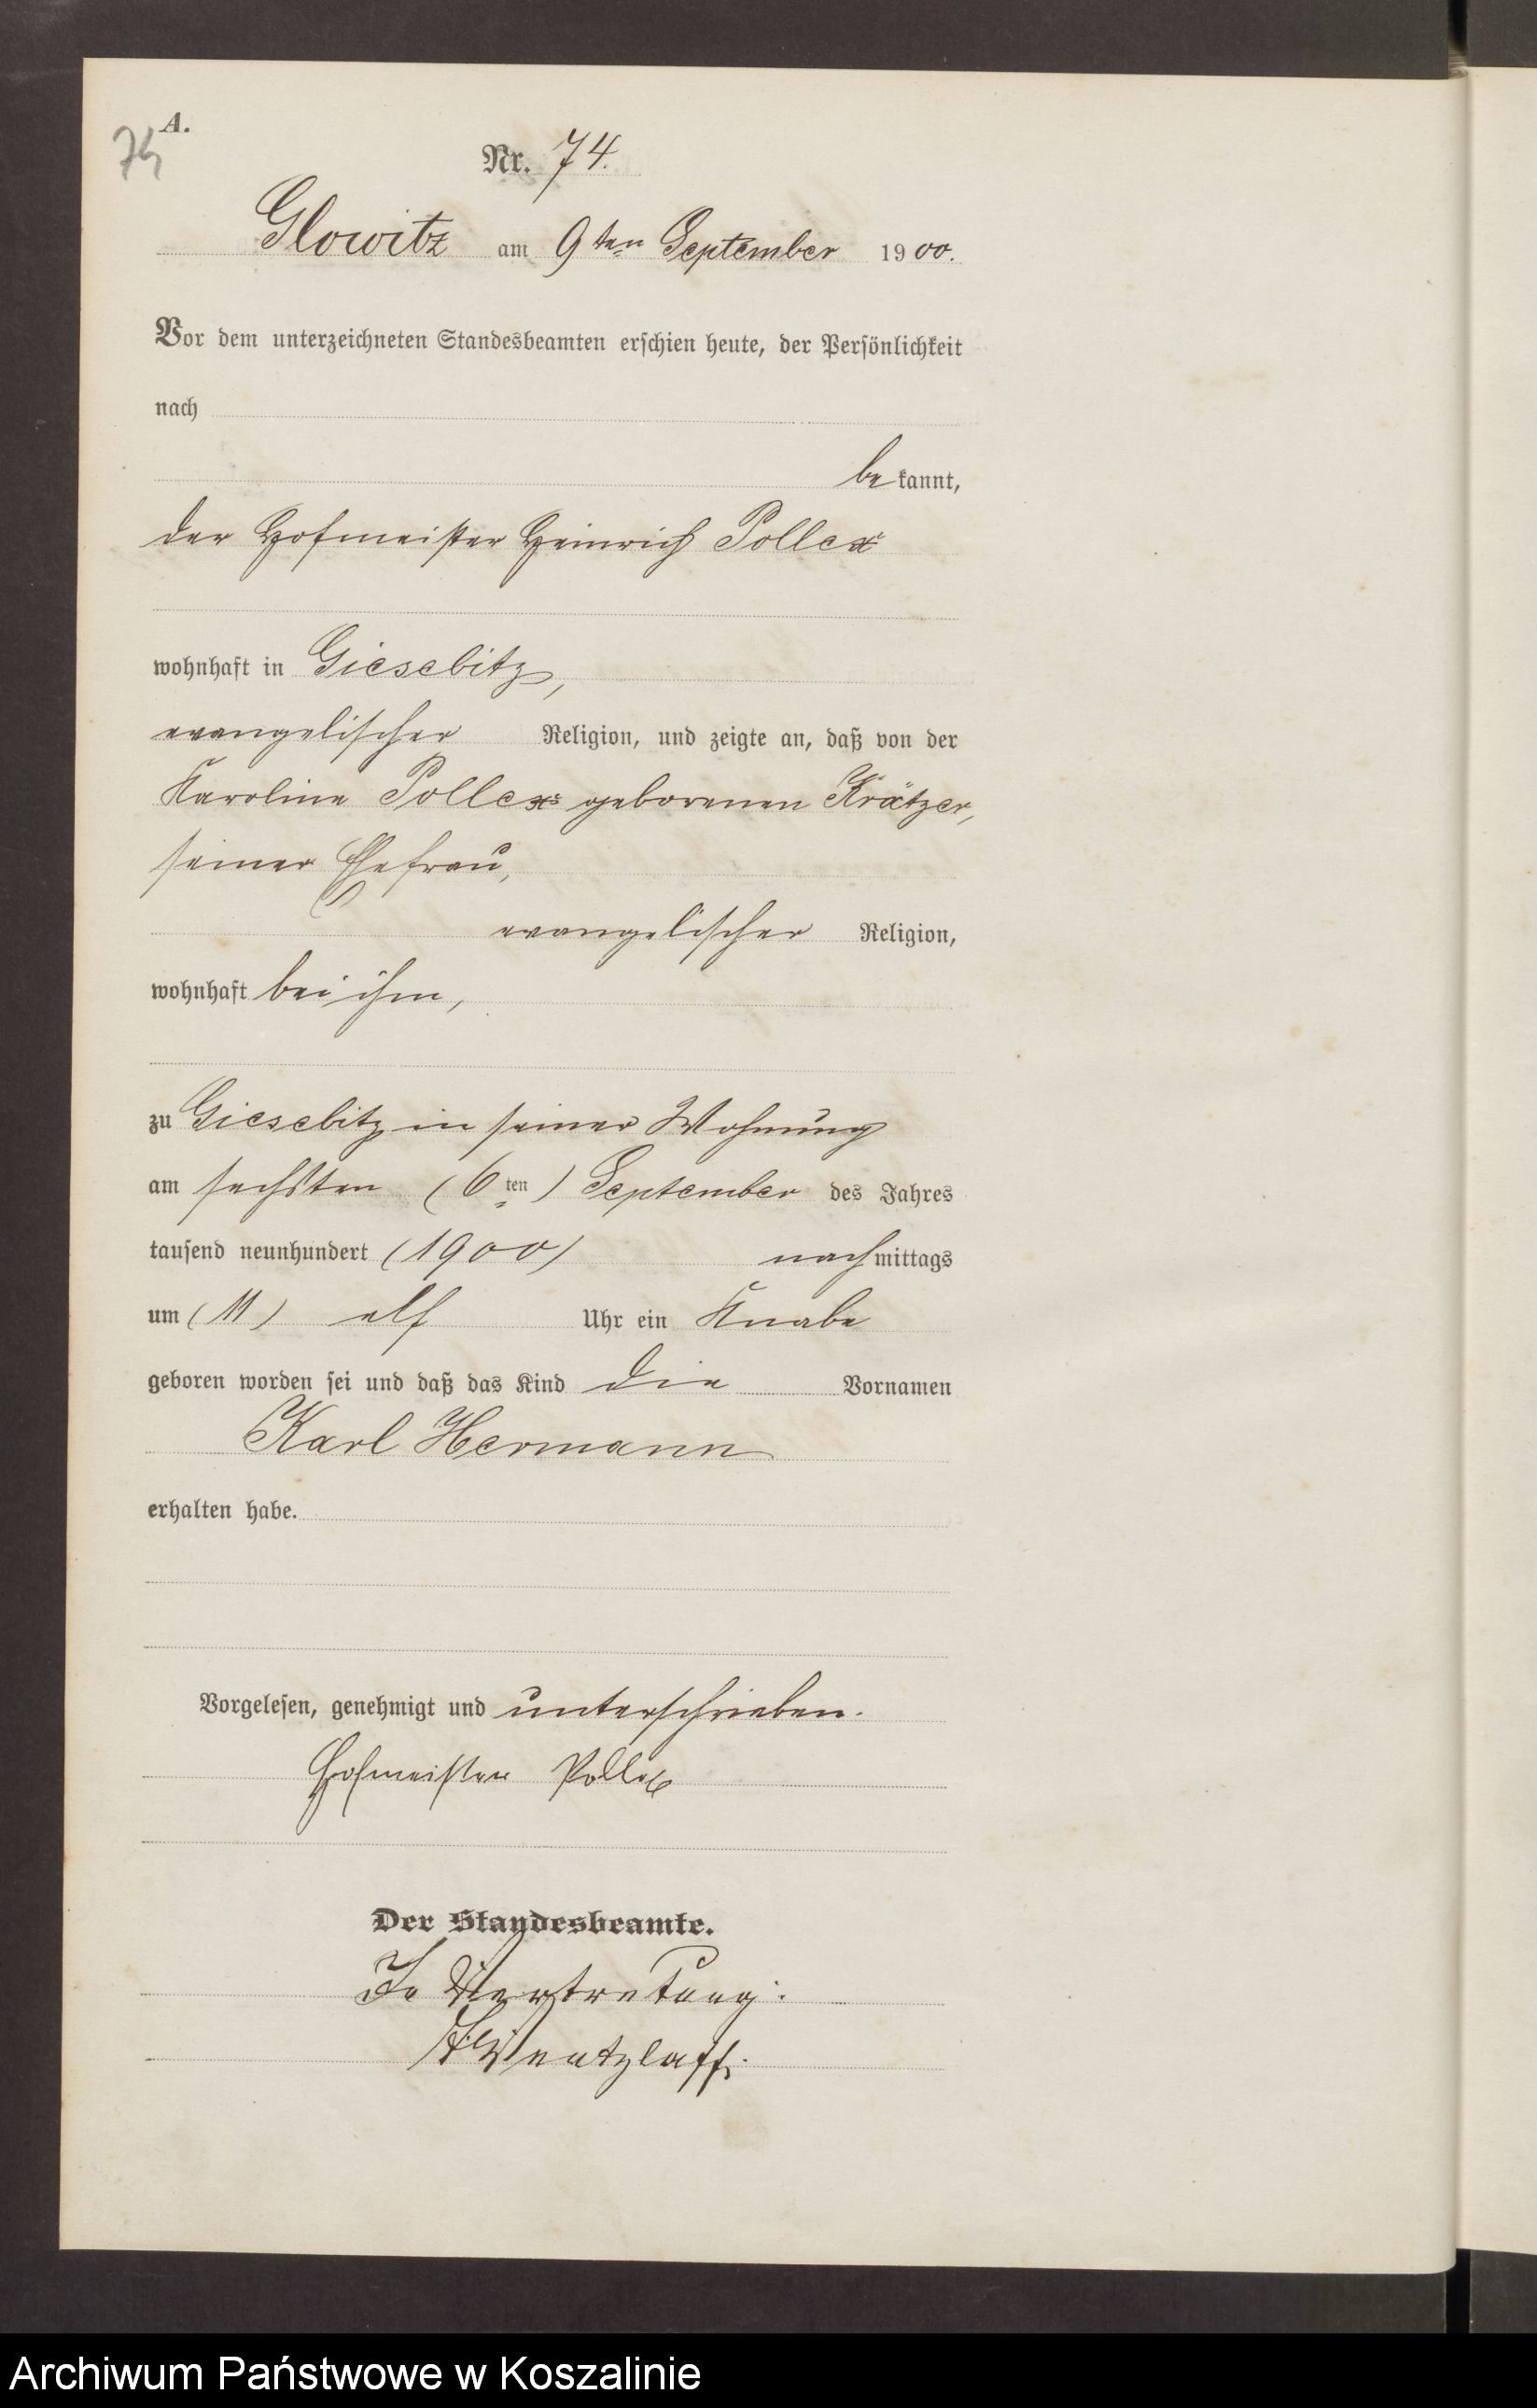 A.
74
Nr. 74.
Glowitz am 9ten September 1900.
Vor dem unterzeichneten Standesbeamten erschien heute, der Persönlichkeit
nach
bekannt,
der Hofmeister Heinrich Pollex
wohnhaft in Giesebitz,
evangelischer Religion, und zeigte an, daß von der
Karoline Pollex geborenen Krätzer,
seiner Ehefrau,
evangelischer Religion,
wohnhaft bei ihm,
zu Giesebitz in seiner Wohnung
am sechsten (6ten) September des Jahres
tausend neunhundert (1900) nachmittags
um (11) elf Uhr ein Knabe
geboren worden sei und daß das Kind die Vornamen
Karl Hermann
erhalten habe.
Vorgelesen, genehmigt und unterschrieben.
Hofmeister Pollex
Der Standesbeamte.
In Vertretung:
Wentzlaff.
Archiwum Państwowe w Koszalinie